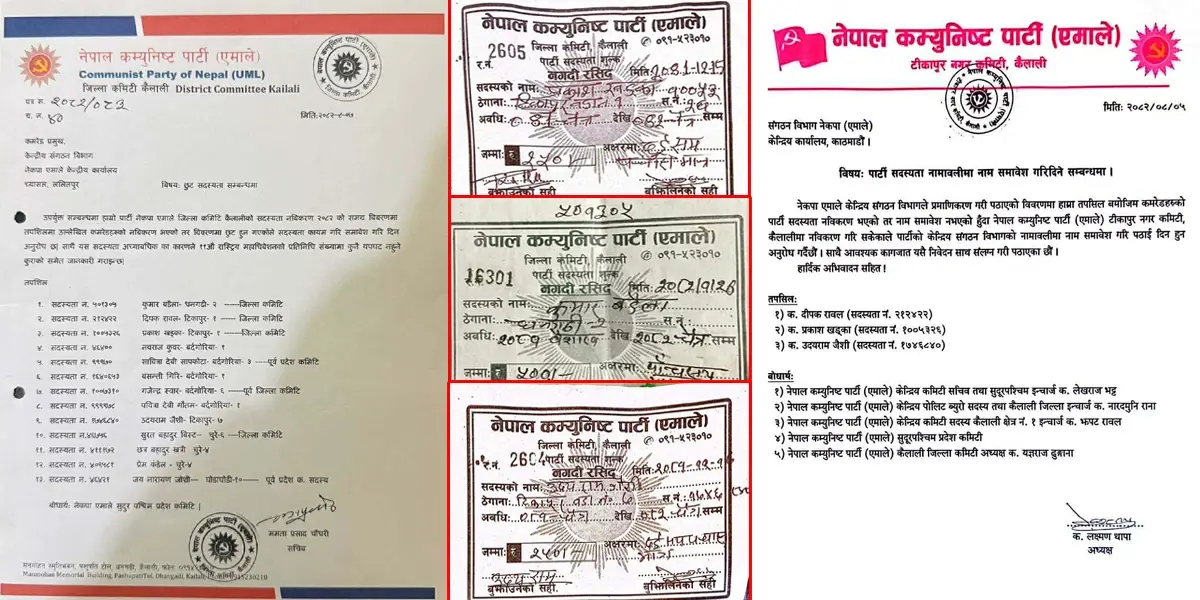 नेपाल कम्युनिष्ट पार्टी (एमाले)
Communist Party of Nepal (UML)
जिल्ला कमिटि कैलाली District Committee Kailali
पत्र सं. २०८२/०८३
च. नं. ४०
मिति:२०८२-८-०५
कमरेड प्रमुख,
केन्द्रीय संगठन विभाग
नेकपा एमाले केन्द्रीय कार्यालय
च्यासल, ललितपुर
विषय: छुट सदस्यता सम्बन्धमा
उपर्युक्त सम्बन्धमा हाम्रो पार्टी नेकपा एमाले जिल्ला कमिटि कैलालीको सदस्यता नविकरण २०८२ को समग्र विवरणमा
तपसिलमा उल्लेखित कमरेडहरुको नविकरण भएको तर विवरणमा छुट हुन गएकोले सदस्यता कायम गरि दिन
अनुरोध छ। साथै यस सदस्यता अध्यावधिक का कारणले ११औं राष्ट्रिय महाधिवेशनको प्रतिनिधि संख्यामा कुनै थपघट नहुने
कुराको समेत जानकारी गराइन्छ।
तपशिल
१. सदस्यता न. ५०१३०५ कुमार बडैला- धनगढी- २ -----जिल्ला कमिटि
२. सदस्यता न. २१२४२२ दिपक रावल- टिकापुर- १ -----जिल्ला कमिटि
३. सदस्यता न. १००५३२६ प्रकाश खड्का- टिकापुर- १ -----जिल्ला कमिटि
४. सदस्यता न. ४६४०० नवराज कुवर- बर्दगोरिया- १
५. सदस्यता न. ९९९७० सावित्रा देवी सापकोटा- बर्दगोरिया- ३ ---पूर्व प्रदेश कमिटि
६. सदस्यता न. १६४०६५३ बसन्ती गिरि- बर्दगोरिया- १
७. सदस्यता न. १००५७३१० गजेन्द्र स्वार- बर्दगोरिया- ६ ---पूर्व जिल्ला कमिटि
८. सदस्यता न. ९९९१७८ पवित्रा देवी गौतम- बर्दगोरिया- १
९. सदस्यता न. १७४६८४० उदयराम जैशी- टिकापुर- ७
१०. सुरत बहादुर बिस्ट- चुरे-६ ---जिल्ला कमिटि
११. सदस्यता न. ४१११७२ छत्र बहादुर खत्री चुरे-४
१२. सदस्यता न. ४०९५८१ प्रेम कंडेल - चुरे-४
१३. सदस्यता न. ४६४२१ जय नारायण जोशी- १० पूर्व प्रदेश क. सदस्य
बोधार्थ: नेकपा एमाले सुदुर पश्चिम प्रदेश कमिटि ।
ममता प्रसाद चौधरी
सचिव
मनमोहन स्मृतिभवन, पशुपति टोल, धनगढी, कैलाली, फोन
Manmohan Memorial Building, PashupatiTol, Dhangadi, Kailali
नेपाल कम्युनिष्ट पार्टी (एमाले)
2605 जिल्ला कमिटि, कैलाली ✆ ०९१-५२३०१०
र.नं. पार्टी सदस्यता शुल्क
नगदी रसिद मिति: 2081-12-15
सदस्यको नाम: प्रकाश खड्का १००५३
ठेगाना: टिकापुर वडा नं १ स.नं. २६
अवधि: ०८१ चैत्र देखि ०८२ चैत्र सम्म
जम्मा: रु २५०/- अक्षरमा: दुई सय
पचास मात्र
बुझाउनेको सही बुझिलिनेको सही
५०१३०५
नेपाल कम्युनिष्ट पार्टी (एमाले)
जिल्ला कमिटि, कैलाली ✆ ०९१-५२३०१०
16301 पार्टी सदस्यता शुल्क
नगदी रसिद मिति: 20८2/9/26
सदस्यको नाम: कुमार बडैला
ठेगाना: धनगढी-२ स.नं.:
अवधि: २०८१ बैशाख देखि २०८२ चैत्र सम्म
जम्मा: रु ५००/- अक्षरमा: पाँचसय
नेपाल कम्युनिष्ट पार्टी (एमाले)
जिल्ला कमिटि, कैलाली ✆ ०९१-५२३०१०
र.नं. 2604 पार्टी सदस्यता शुल्क
नगदी रसिद मिति: २०८१-१२-१५
सदस्यको नाम: उदय राम जोशी
ठेगाना: टिकापुर वडा नं. ७ स.नं. १७४६
अवधि: ०८१ चैत्र देखि ०८२ चैत्र सम्म
जम्मा: रु २५०/- अक्षरमा: दुई सय पचास
मात्र
उदय राम
बुझाउनेको सही. बुझिलिनेको सही
नेपाल कम्युनिष्ट पार्टी (एमाले)
टीकापुर नगर कमिटी, कैलाली
मिति: २०८२/०८/०५
संगठन विभाग नेकपा (एमाले)
केन्द्रिय कार्यालय, काठमाडौं ।
विषय: पार्टी सदस्यता नामावलीमा नाम समावेश गरिदिने सम्बन्धमा ।
नेकपा एमाले केन्द्रिय संगठन विभागले प्रमाणिकरण गरी पठाएको विवरणमा हाम्रा तपसिल बमोजिम कमरेडहरुको
पार्टी सदस्यता नविकरण भएको तर नाम समावेश नभएको हुँदा नेपाल कम्युनिष्ट पार्टी (एमाले) टीकापुर नगर कमिटी,
कैलालीमा नविकरण गरि सकेकाले पार्टीको केन्द्रिय संगठन विभागको नामावलीमा नाम समावेश गरि पठाई दिन हुन
अनुरोध गर्दछौं । साथै आवश्यक कागजात यसै निवेदन साथ संलग्न गरी पठाएका छौं ।
हार्दिक अभिवादन सहित !
तपसिल:
१) क. दीपक रावल (सदस्यता नं. २१२४२२)
२) क. प्रकाश खड्का (सदस्यता नं. १००५३२६)
३) क. उदयराम जैशी (सदस्यता नं. १७४६८४०)
बोधार्थ:
१) नेपाल कम्युनिष्ट पार्टी (एमाले) केन्द्रिय कमिटि सचिव तथा सुदूरपश्चिम इन्चार्ज क. लेखराज भट्ट
२) नेपाल कम्युनिष्ट पार्टी (एमाले) केन्द्रिय पोलिट ब्युरो सदस्य तथा कैलाली जिल्ला इन्चार्ज क. नारदमुनि राना
३) नेपाल कम्युनिष्ट पार्टी (एमाले) केन्द्रिय कमिटी सदस्य कैलाली क्षेत्र नं. १ इन्चार्ज क. झपट रावल
४) नेपाल कम्युनिष्ट पार्टी (एमाले) सुदूरपश्चिम प्रदेश कमिटी
५) नेपाल कम्युनिष्ट पार्टी (एमाले) कैलाली जिल्ला कमिटी अध्यक्ष क. यज्ञराज ढुङ्गाना
क. लक्ष्मण थापा
अध्यक्ष